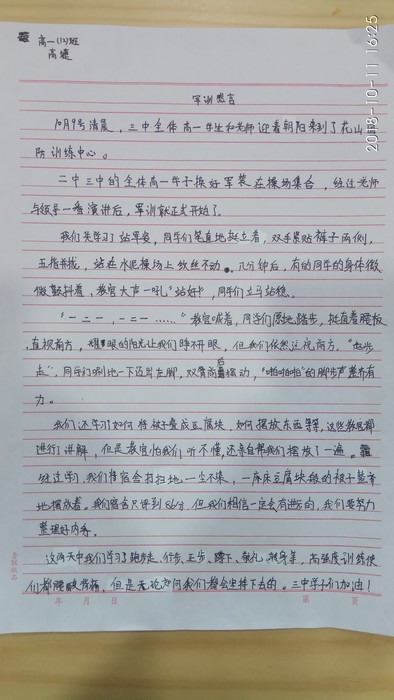 高一(12)班
高堤
2018-10-11 16:25
军训感言
10月9号清晨，三中全体高一生和老师迎着朝阳来到了花山国
防训练中心。
二中三中的全体高一学子换好军装在操场集合，经过老师
与领导一番演讲后，军训就正式开始了。
我们先学习了站军姿，同学们笔直地挺立着，双手紧贴裤子两侧，
五指并拢，站在水泥操场上纹丝不动。几分钟后，有的同学的身体微
微颤抖着，教官大声一吼"站好"，同学们立马站稳。
"一二一，一二一……"教官喊着，同学们原地踏步，挺直着腰板
直视前方，耀眼的阳光让我们睁不开眼，但我们依然注视前方。"齐步
走"，同学们唰地一下迈出左脚，双臂前后摆动，"啪啪啪"的脚步声整齐有
力。
我们还学习了如何将被子叠成豆腐块，如何摆放东西等等，这些教官都
进行了讲解，但是教官怕我们听不懂，还亲自帮我们摆放了一遍。
经过学习，我们将宿舍打扫地一尘不染，一床床豆腐块般的被子整齐
地摆放着。我们宿舍只评到86分，但我们相信一定会有进步的，我们要努力
整理好内务。
这两天中我们学习了跑步走、行步、正步、蹲下、敬礼、转身等，高强度训练使
们都腰酸背痛，但是无论如何我们都会坚持下去的。三中学子们加油！
年 月 日 第 页